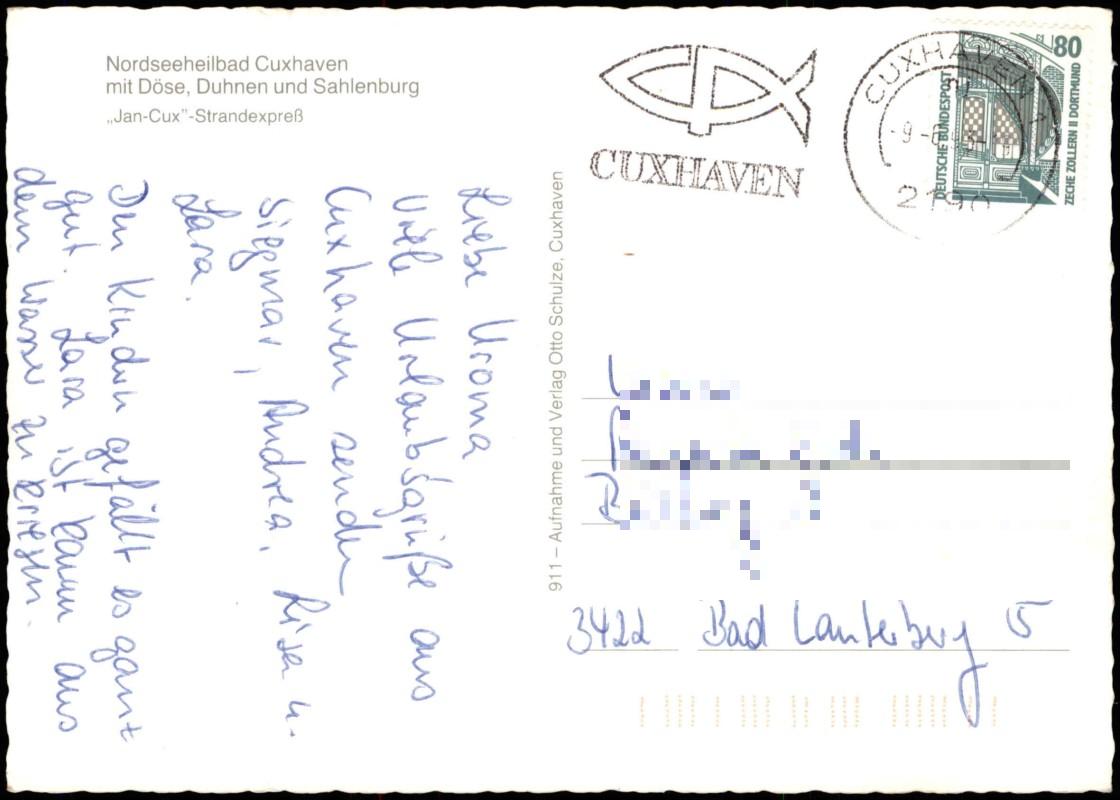 Nordseeheilbad Cuxhaven
mit Döse, Duhnen und Sahlenburg
„Jan-Cux"-Strandexpreß
Liebe Uroma
Viele Urlaubsgrüße aus
Cuxhaven senden
Siegmar, Andrea, Lisa u.
Lara.
Den Kindern gefällt es ganz
gut. Lara ist kaum aus
dem Wasser zu kriegen.
911 – Aufnahme und Verlag Otto Schulze, Cuxhaven
CUXHAVEN
CUXHAVEN 1
2190
80
DEUTSCHE BUNDESPOST
ZECHE ZOLLERN II DORTMUND
3422 Bad Lauterberg 5